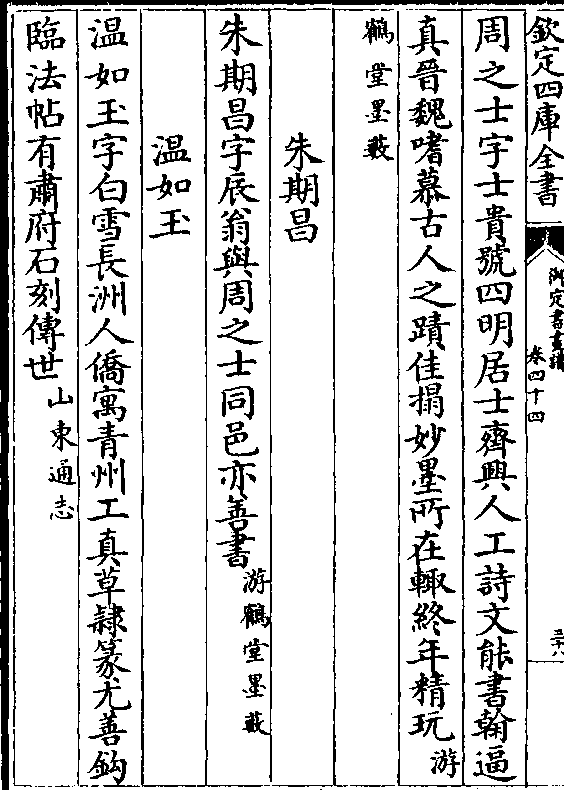 欽定四庫全書
御定書畫譜
卷四十四
三十八
周之士字士貴號四明居士齊興人工詩文能書翰逼
真晉魏嗜慕古人之蹟佳搨妙墨所在輙終年精玩游
鶴堂墨藪
朱期昌
朱期昌字辰翁與周之士同邑亦善書游鶴堂墨藪
温如玉
温如玉字白雪長洲人僑寓青州工真草隷篆尤善鈎
臨法帖有肅府石刻傳世山東通志